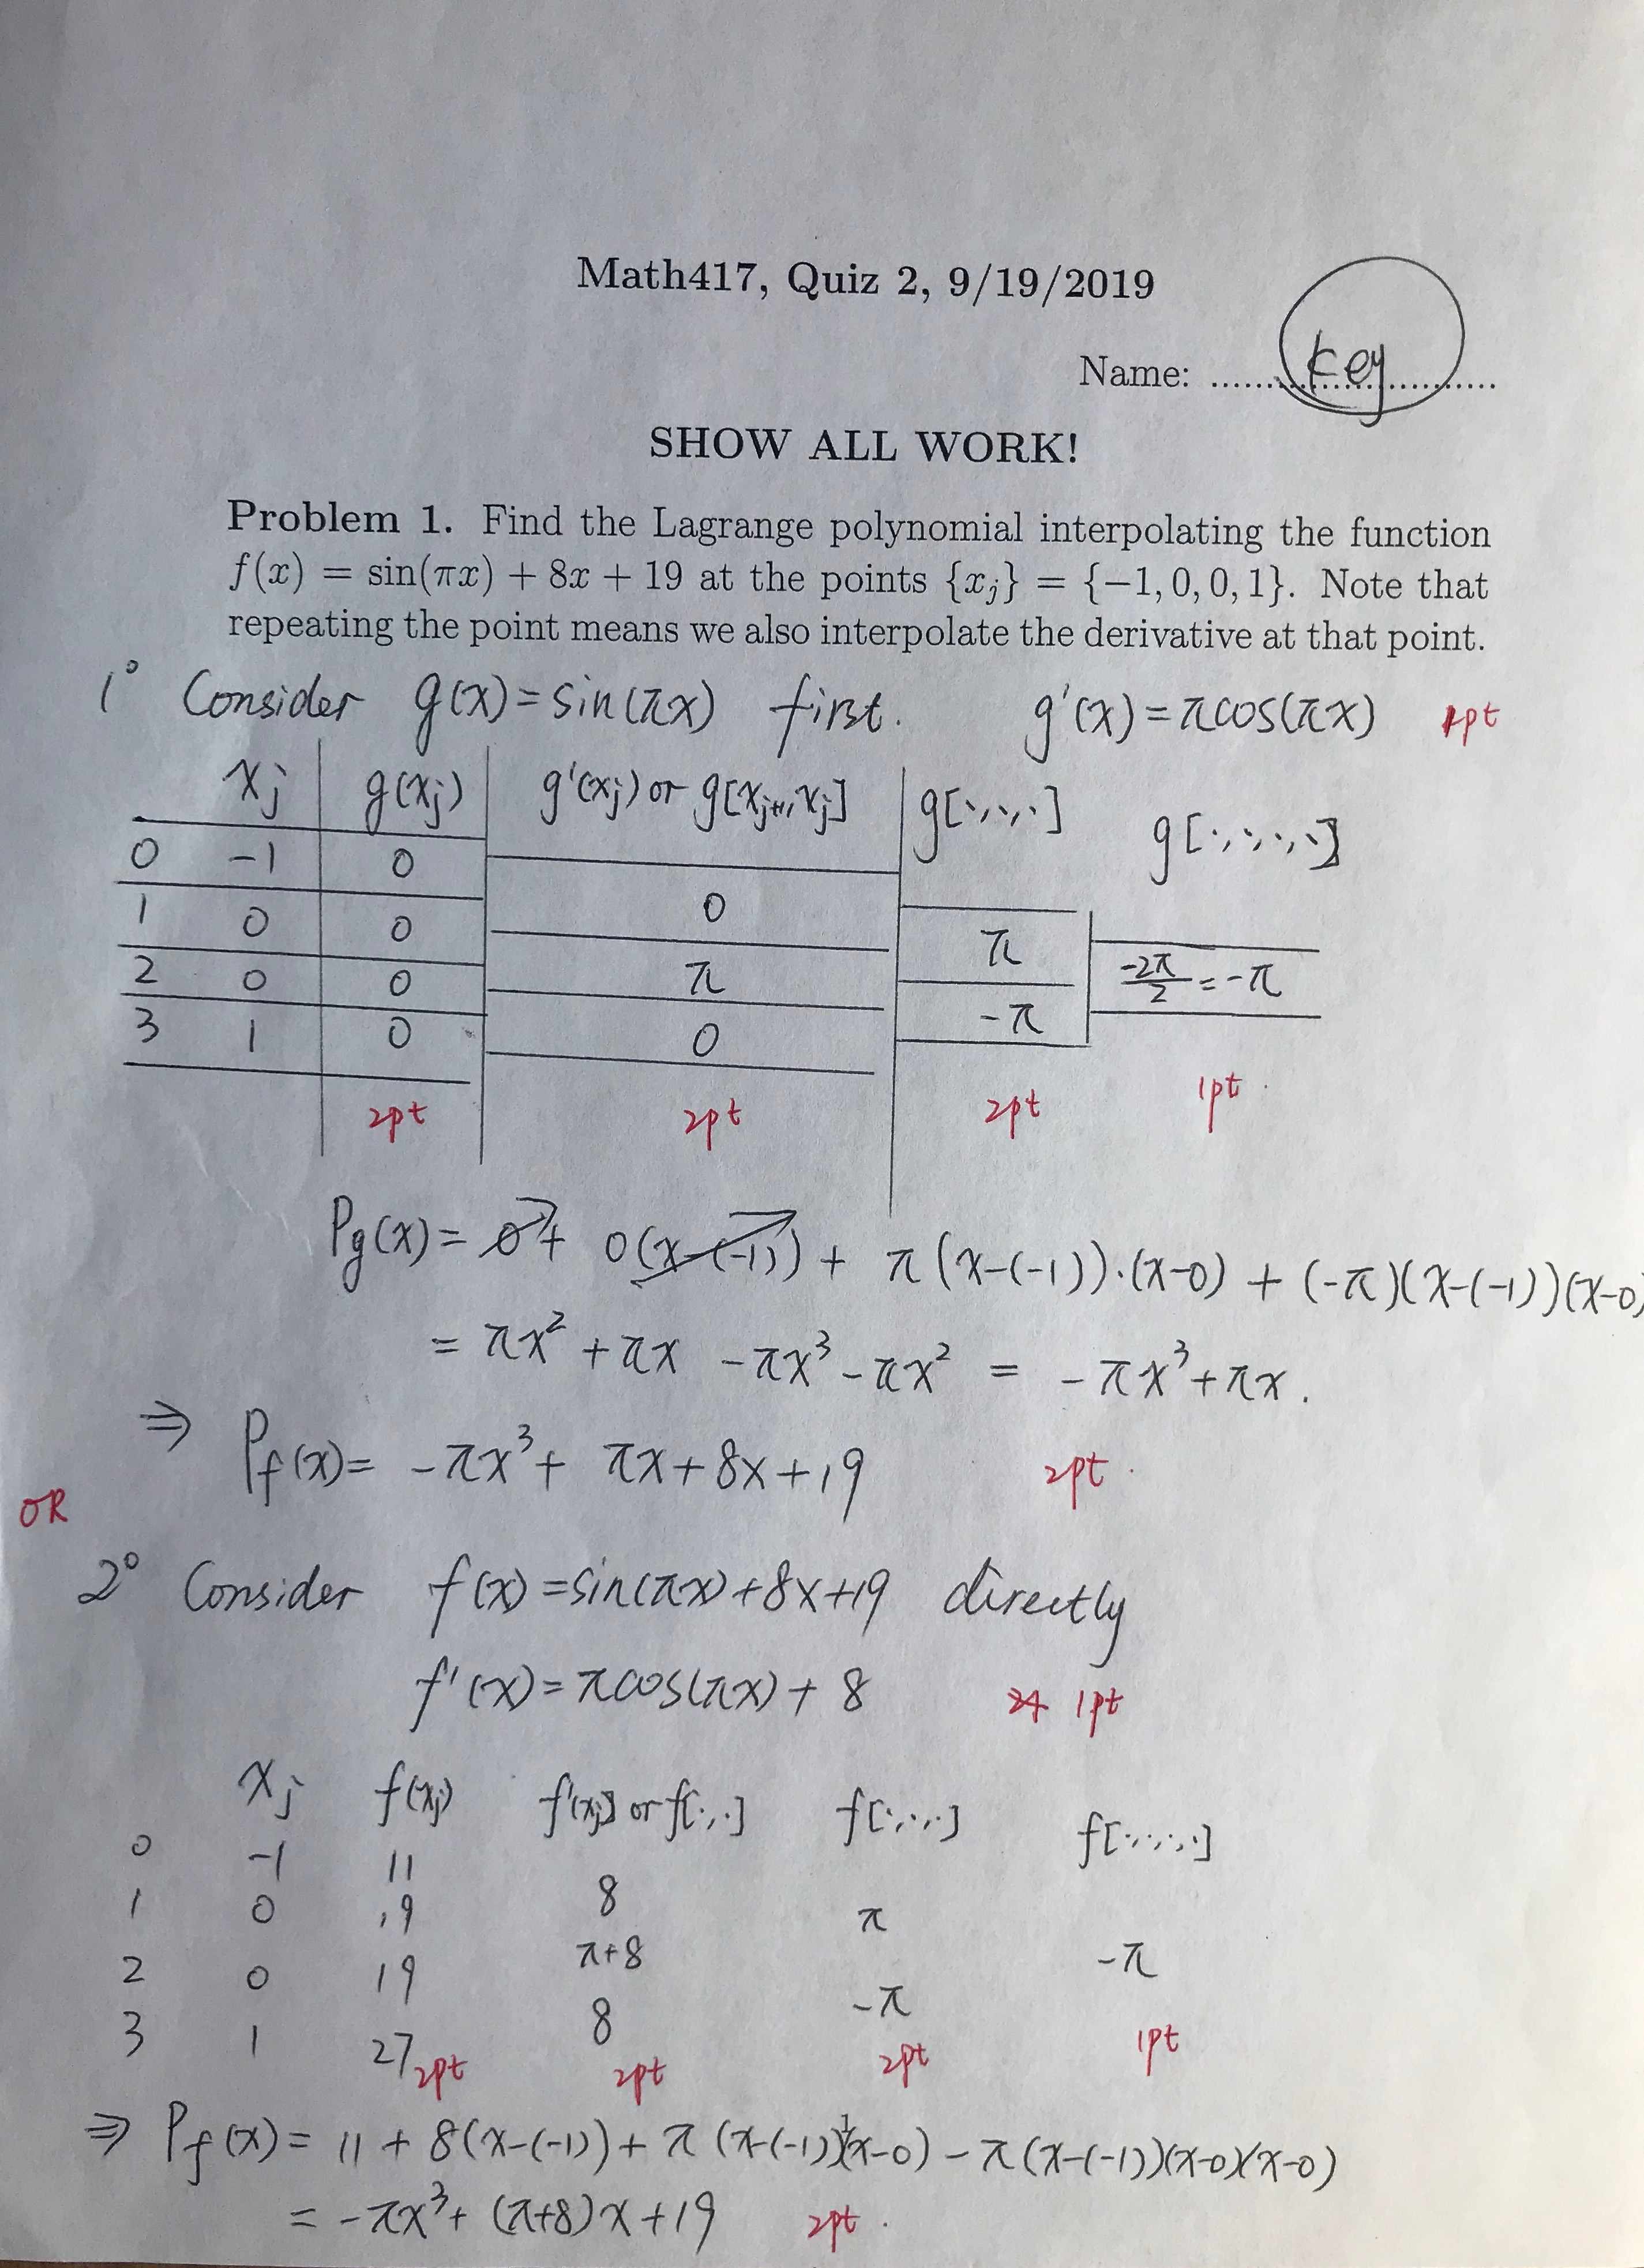 Math417, Quiz 2, 9/19/2019
Name: .............................. Key
SHOW ALL WORK!
Problem 1. Find the Lagrange polynomial interpolating the function
f(x) = sin(πx) + 8x + 19 at the points {x_j} = {−1, 0, 0, 1}. Note that
repeating the point means we also interpolate the derivative at that point.
1° Consider g(x)=sin(πx) first. g'(x)=πcos(πx) 1pt
x_j g(x_j) g'(x_j) or g[x_{j+1}, x_j] g[·,·,·] g[·,·,·,·]
0 -1 0
0
1 0 0 π
2 0 0 π -2π/2 = -π
-π
3 1 0 0
2pt 2pt 2pt 1pt
P_g(x)= 0 + 0(x-(-1)) + π(x-(-1))·(x-0) + (-π)(x-(-1))(x-0)
= πx² + πx -πx³ -πx² = -πx³+πx.
⇒ P_f(x)= -πx³+ πx+8x+19 2pt.
OR
2° Consider f(x)=sin(πx)+8x+19 directly
f'(x)=πcos(πx)+ 8 1pt
x_j f(x_j) f'(x_j) or f[·,·] f[·,·,·] f[·,·,·,·]
0 -1 11
8
1 0 19 π
π+8 -π
2 0 19 -π
8
3 1 27 2pt 2pt 2pt 1pt
⇒ P_f(x)= 11 + 8(x-(-1)) + π(x-(-1))(x-0) - π(x-(-1))(x-0)(x-0)
= -πx³+ (π+8)x+19 2pt.